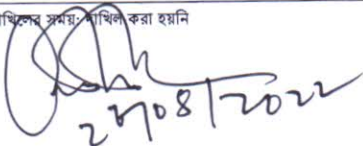 দাখিলের সময়: দাখিল করা হয়নি
২৮/০৪/২০২২